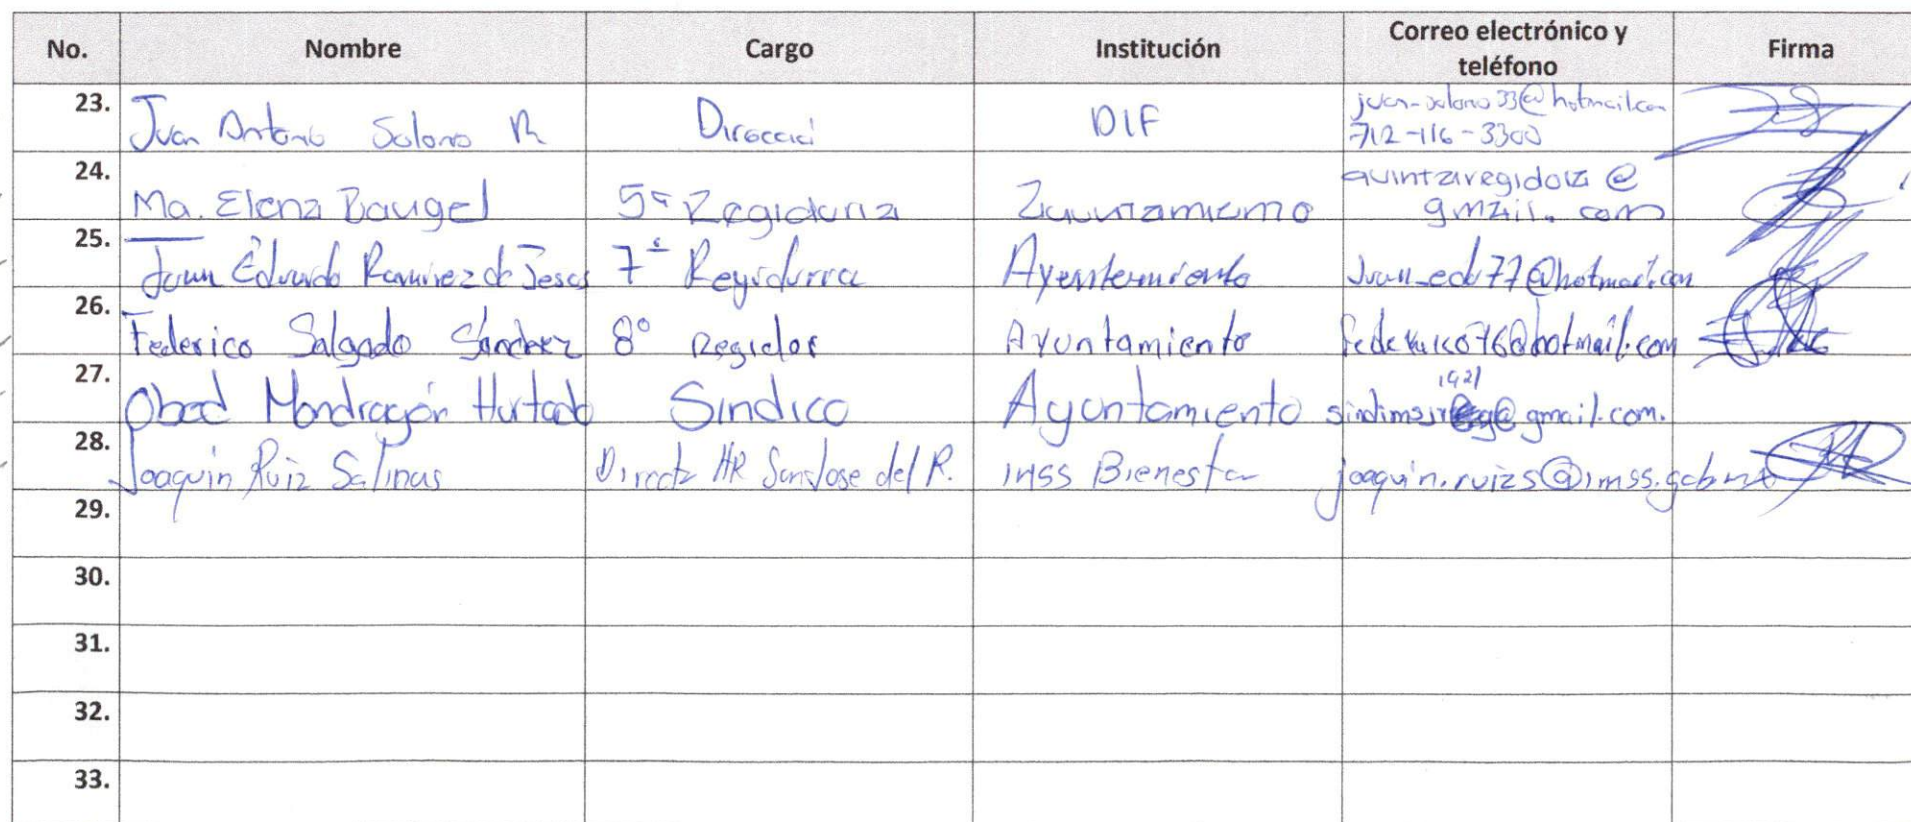 No. Nombre Cargo Institución Correo electrónico y teléfono Firma
23. Juan Antonio Solano R Direcció DIF juan-solano33@hotmail.com 712-116-3300
24. Ma. Elena 5ª Regiduria quintaregidora@gmail.com
25. Juan Eduardo Ramirez de Jesus 7ª Regidurra Ayuntamiento Juan_edu77@hotmail.com
26. Federico Salgado Sánchez 8° Regidor Ayuntamiento @hotmail.com
27. Obed Mondragón Hurtado Sindico Ayuntamiento @gmail.com.
28. Joaquin Ruiz Salinas HR San Jose del R. imss Bienestar joaquin.ruizs@imss.gob.mx
29.
30.
31.
32.
33.